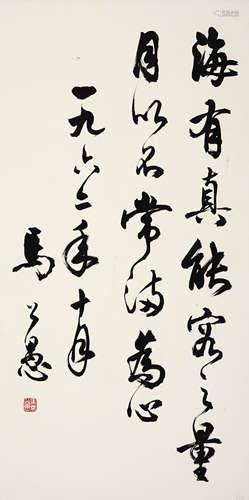 海有真能容之量
月以不常满為心
一九六二年十月
馬公愚